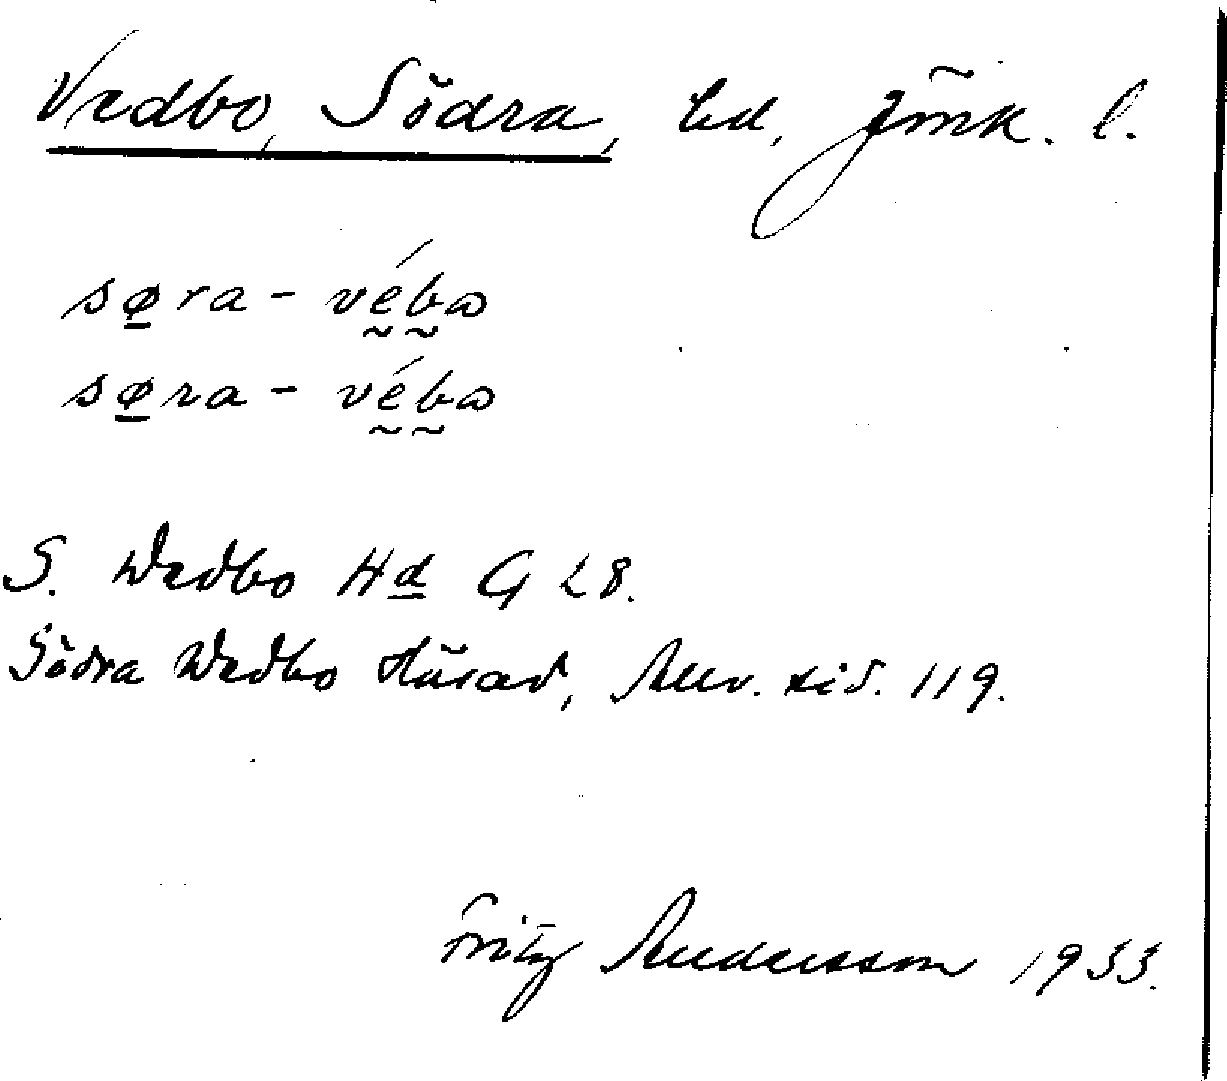 Vedbo, Södra, hd, Jönk. l.
sø̲ra - vḛ́b̰ω
sø̲ra - vḛ́b̰ω
S. Wedbo Hd G L8.
Södra Wedbo Härad, sid. 119.
Fritz Andersson 1933.